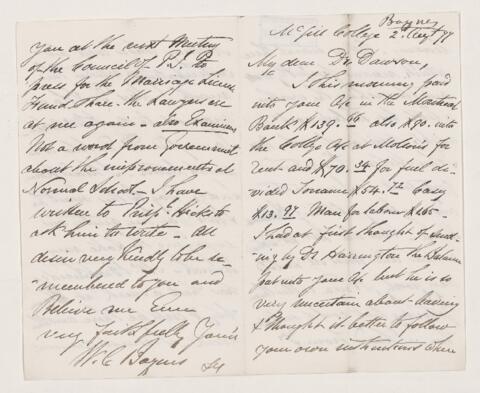 Baynes
McGill College 2d Augt 77
My dear Dr. Dawson,
I this morning paid
into your a/c in the Montreal
Bank $139.96 also $90. into
the College a/c at Molson's for
rent and $70.34 for fuel di-
vided
$13.97 Man for labour
I had at first thought of send-
ing by Dr. Harrington the Balance
put into your a/c but he is so
very uncertain about leaving
I thought it better to follow
your own instructions when
you at the next Meeting
of the Council of P.I. to
press for the Marriage Licence
Fund Share. The Lawyers are
at me again - also Examiners
Not a word from Government
about the improvements at
Normal School - I have
written to Prinpl. Hicks to
ask him to write. All
desire very kindly to be re-
-membered to you and
Believe me Ever
very faithfully Yours
W. C. Baynes